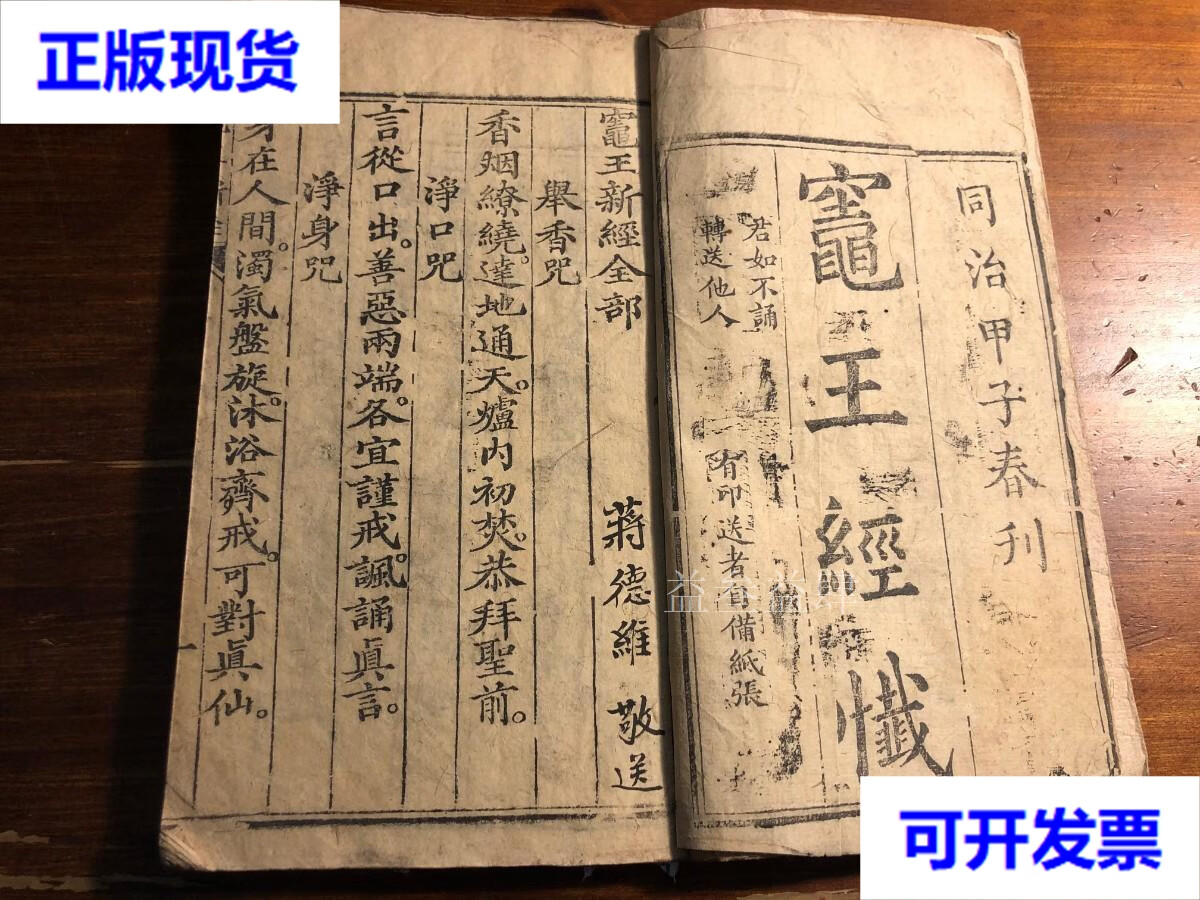 正版现货
同治甲子春刊
竈王經懺
君如不誦
轉送他人
有印送者自備紙張
竈王新經全部 蔣德維敬送
舉香咒
香烟繚繞。達地通天。爐內初焚。恭拜聖前。
淨口咒
言從口出。善惡兩端。各宜謹戒。諷誦眞言。
淨身咒
身在人間。濁氣盤旋。沐浴齊戒。可對眞仙。
一
可开发票